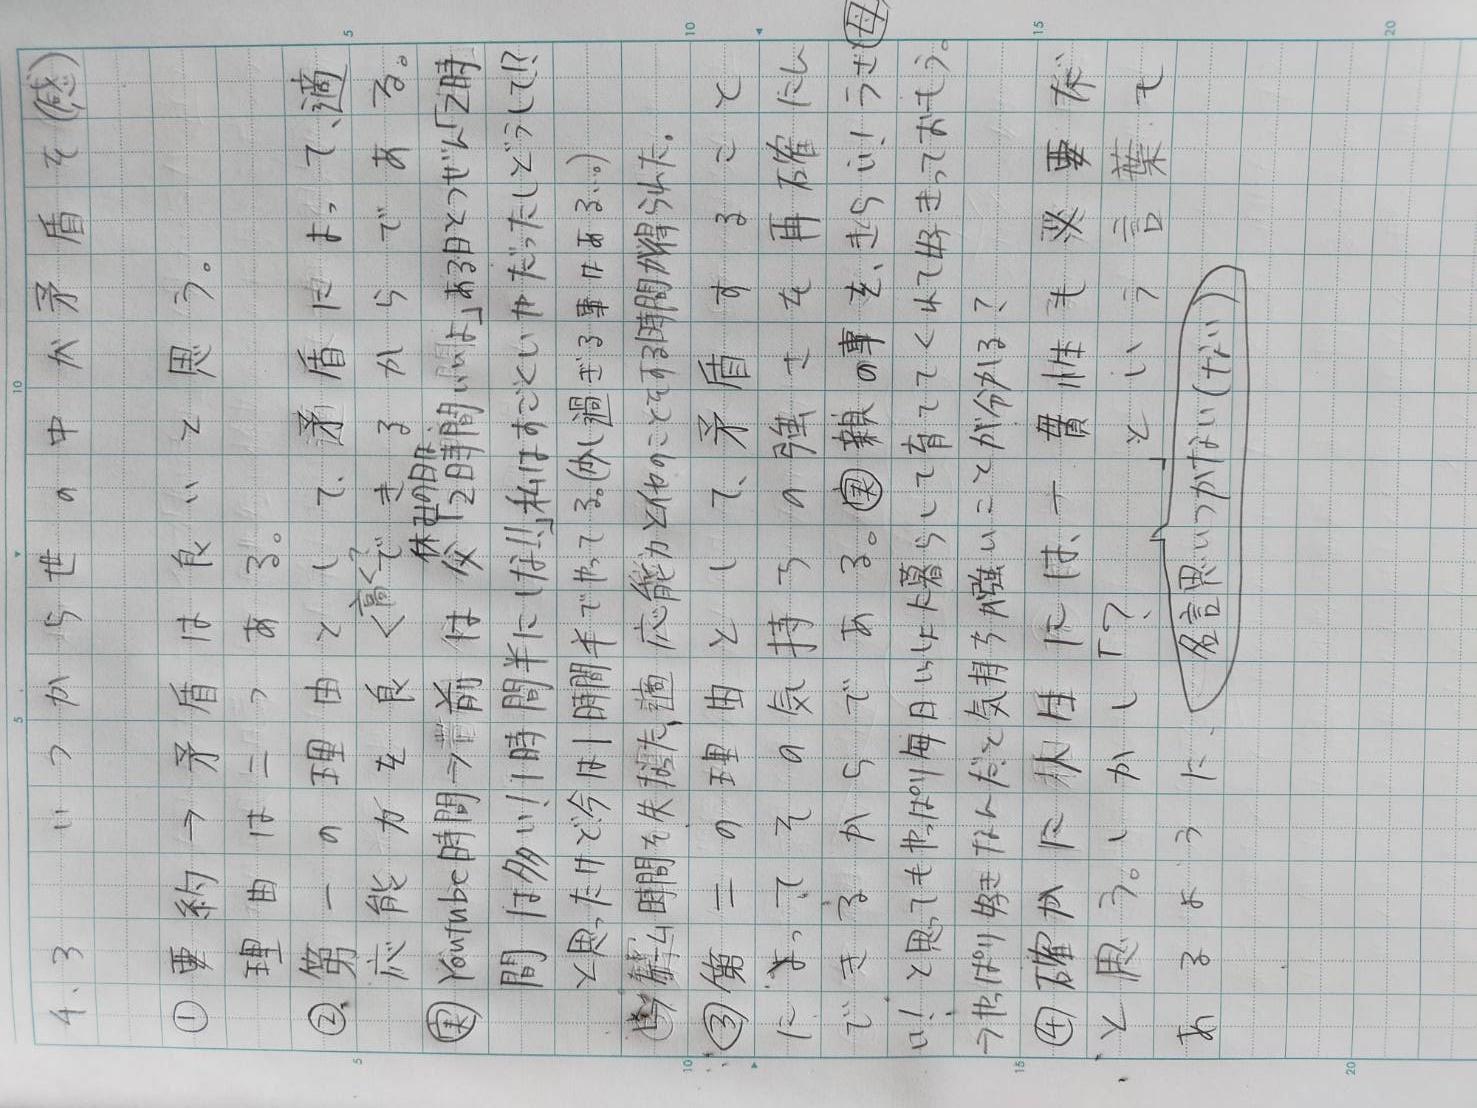 4.3 いつからか世の中が矛盾を(感)
① 要約→矛盾は良いと思う。
理由は二つある。
② 第一の理由として、矛盾によって、適
応能力を良く(高く?)できるからである。
実 Youtube時間→前は 休みの日は 「2時間いいよ」ある日とつぜん「2時
間は多い!1時間半にしな!!」私はすごくいやだったしどうして!?
と思ったけど今は1時間半でやってる。(少し過ぎる事はある…。)
時間を失なった、適応能力と他のことをする時間が得られた。
③ 第二の理由として、矛盾すること
によってその気持ちの強さを再確にん
できるからである。実 親の事を、きらい!うざ 母
い!と思ってもやっぱり毎日いっしょに暮らして育ててくれて好きっておもう。
→やっぱり好きなんだって気持ちが強いことが分かる?
④ 確かに休日には、一貫性も必要だ
と思う。しかし「?」という言葉も
あるように
名言思いつかない(ない)
5
10
15
20
5
10
15
20